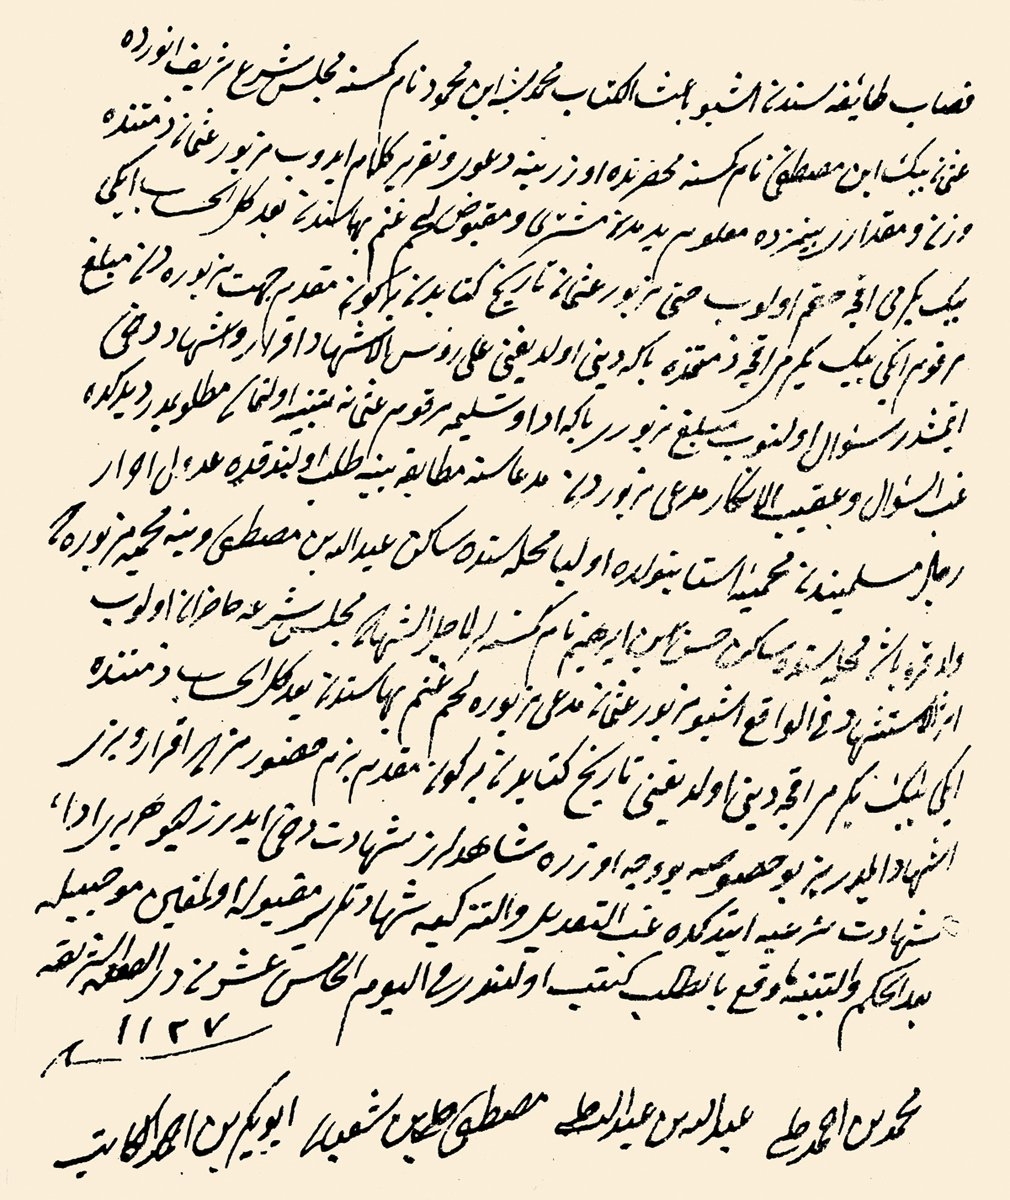 قصاب طائفه سندن اشبو باعث الكتاب محمد بشه ابن محمود نام كمسنه مجلس شرع شريف انورده
عثمان بيك ابن مصطفى نام كمسنه محضرنده اوزرينه دعوى و تقرير كلام ايدوب مزبور عثمان ذمتنده
وزن و مقدارى بينمزده معلوم يدندن مشترى و مقبوض لحم غنم بهاسندن بعد كل الحساب ايكى
بيك يكرمى اقچه حقم اولوب حتى مزبور عثمان تاريخ كتابدن كون مقدم جهت مزبوره دن مبلغ
مرقوم ايكى بيك يكرمى اقچه ذمتمده باكه دينى اولديغنى على رؤس الاشهاد اقرار و اشهاد دخى
ايتمشدر سؤال اولنوب مبلغ مزبورى باكه ادا و تسليمه مرقوم عثمانه تنبيه اولنمق مطلوبمدر ديدكده
غب السؤال و عقيب الانكار مدعى مزبوردن مدعاسنه مطابقه بينه طلب اولندقده عدول احرار
رجال مسلميندن محميه استانبولده اوليا محله سنده ساكن عبدالله بن مصطفى وينه محميه مزبوره ده
محله سنده ساكن حسن بن ابرهيم نام كمسنه لر لاجل الشهاده مجلس شرعه حاضران اولوب
اثر الاستشهاد فى الواقع اشبو مزبور عثمان مدعى مزبوره لحم غنم بهاسندن بعد كل الحساب ذمتنده
ايكى بيك يكرمى اقچه دينى اولديغنى تاريخ كتابدن كون مقدم بزم حضورمزده اقرار و بزى
اشهاد ايلدى بز بو خصوصه بو وجه اوزره شاهدلرز شهادت دخى ايدرز ديو هر برى ادا
شهادت شرعيه ايتدكده غب التعديل والتزكيه شهادتلرى مقبوله اولمغين موجبيله
بعد الحكم والتنبيه ماوقع بالطلب كتب اولندى فى اليوم الخامس عشر من ذى القعدة الشريفه
١١٢٧
محمد بن احمد چلبى عبدالله بن عبدالله چلبى مصطفى چلبى بن شعبان ابوبكر بن احمد الكاتب